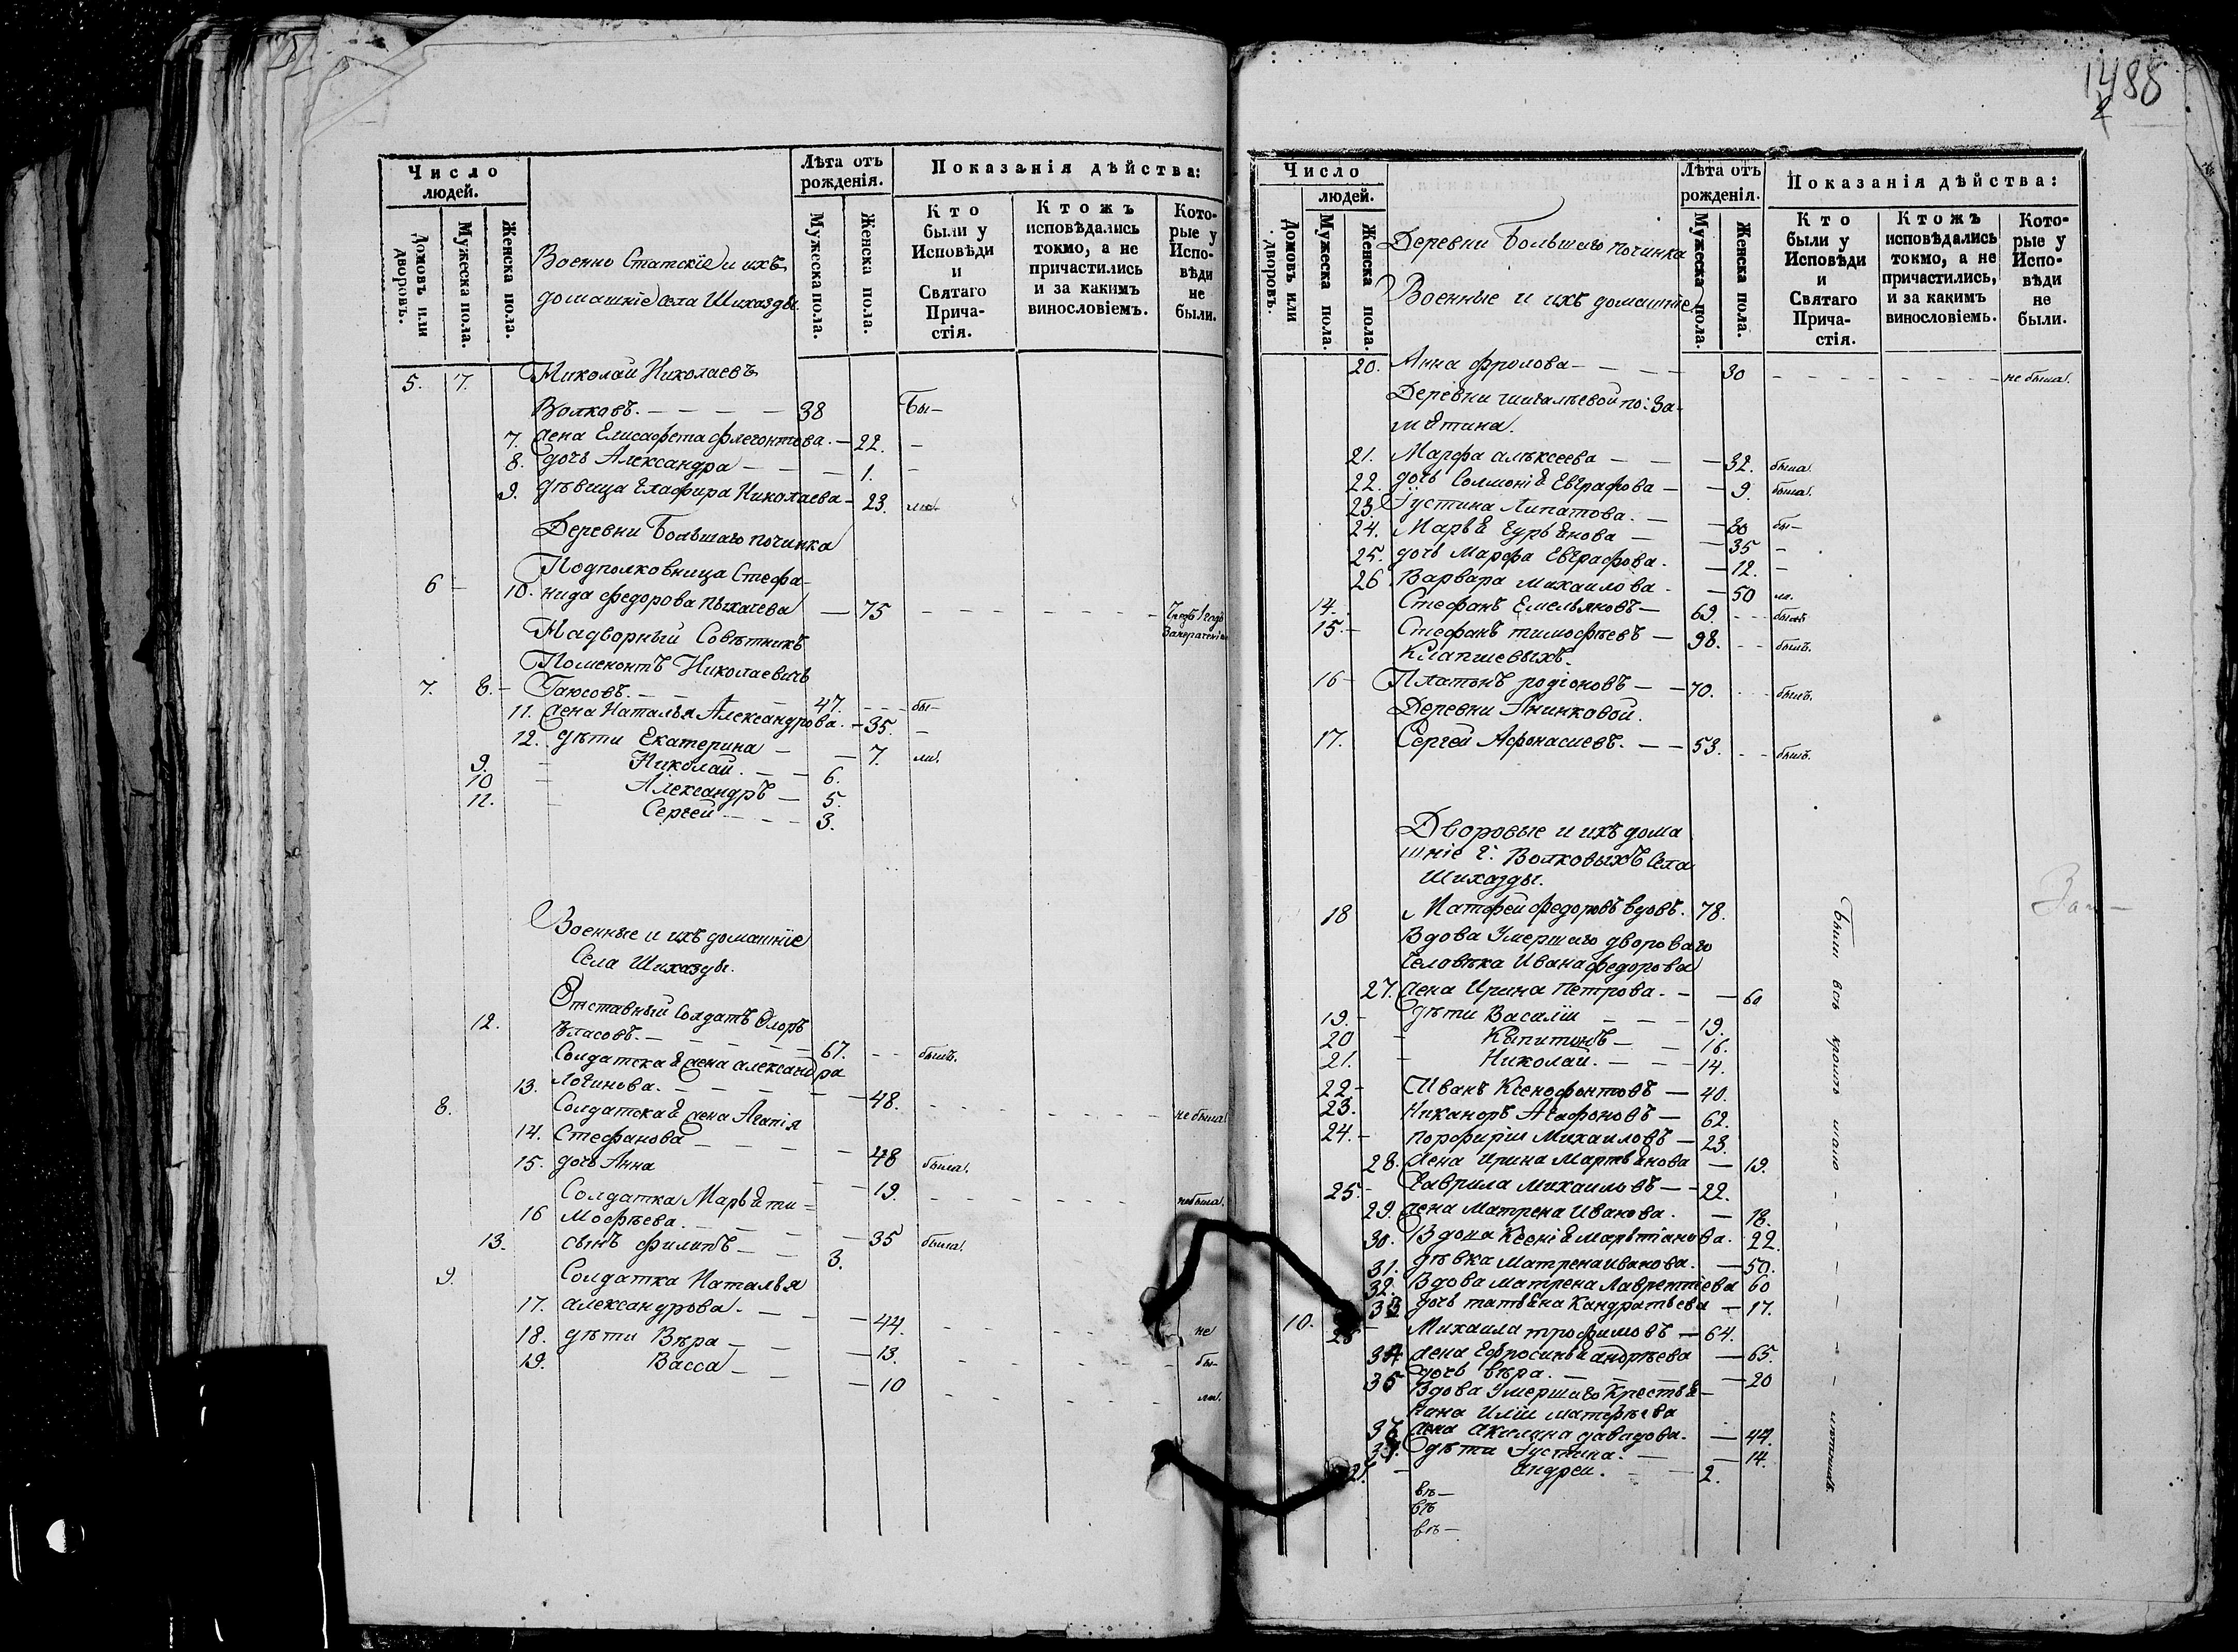 Число
людей.
Домовъ или дворовъ.
Мужеска пола.
Женска пола.
Военно Статскіе и ихъ
домашніе села Шихазды
Лѣта отъ
рожденія.
Мужеска пола.
Женска пола.
Показанія дѣйства:
Кто
были у
Исповѣди
и
Святаго
Прича-
стія.
Ктожъ
исповѣдались
токмо, а не
причастились
и за какимъ
винословіемъ.
Кото-
рые у
Испо-
вѣди
не
были.
5. 7. Николай Николаевъ
Волковъ. 38 Бы-
7. жена Елисафета Флегонтова. 22. -
8. дочь Александра 1. -
9. дѣвица Глафира Николаева 23. ли
Деревни Большаго починка
Подполковница Стефа-
6 10. нида федорова Пыхачева 75
Надворный Совѣтникъ
Николаевичь
7. 8. 47. бы-
11. жена Наталья Александрова. 35. -
12. дѣти Екатерина 7. ли.
9. Николай. 6.
10 Александръ 5.
11. Сергей 3.
Военные и ихъ домашніе
Села Шихазды.
Отставный солдатъ Флоръ
12. Власовъ. 67. былъ.
Солдатская жена александра
13. Логинова. 48. не была.
8. Солдатская жена Агапія
14. Стефанова 48 была.
15. дочь Анна 19. не была.
Солдатка Марья ти=
16 мофѣева. 35 была.
13. сынъ филипъ 3.
9. Солдатка Наталья
17. александрова. 44. не
18. дѣти Вѣра 13. бы-
19. Васса 10 ли.
1488
Число
людей.
Домовъ или дворовъ.
Мужеска пола.
Женска пола.
Деревни Большаго починка
Военные и ихъ домашніе
Лѣта отъ
рожденія.
Мужеска пола.
Женска пола.
Показанія дѣйства:
Кто
были у
Исповѣди
и
Святаго
Прича-
стія.
Ктожъ
исповѣдались
токмо, а не
причастились,
и за какимъ
винословіемъ.
Кото-
рые у
Испо-
вѣди
не
были.
20. Анна фролова 30 не была.
Деревни
21. Марфа алѣксеева 32. была.
22. дочь Соломонія Евграфова 9. была.
23. Іустина Липатова. 30 бы-
24. Марья Гурьянова 35 -
25. дочь Марфа Евграфова. 12. -
26. Варвара михаилова 50 ли.
14. Стефанъ Емельяновъ 69. былъ
15. Стефанъ тимофѣевъ 98. былъ.
16 Платонъ родіоновъ 70. былъ.
Деревни Анинковой.
17. Сергей Афонасиевъ. 53. былъ.
Дворовые и ихъ дома
шніе г. Волковыхъ села
Шихазды.
18 Матфей федоровъ вдовъ. 78.
Вдова Умершаго двороваго
человѣка Ивана федорова
27. жена Ирина Петрова. 60
19. дѣти Василій 19.
20 Капитонъ 16.
21. Николай. 14.
22 Иванъ Ксенофонтовъ 40.
23. Никаноръ Агафоновъ 62.
24. порфирій Михаиловъ 23.
28. жена Ирина Мартьянова 19.
25. Гаврила михаиловъ 22.
29. жена Матрена Иванова. 18.
30. Вдова Ксенія Мартіанова. 22.
31. дѣвка матрена иванова. 50.
32. Вдова матрена Лаврентіева 60
33 дочь татьяна Кандратьева 17.
10. 26 Михаила трофимовъ 64.
34 жена Ефросинья андрѣева 65.
35 дочь вѣра. 20
Вдова Умершаго Крестья-
нина Иліи матфѣева
36 жена акилина давыдова. 44.
37. дѣти Іустина. 14.
27. андреи. 2.
Были всѣ кромѣ